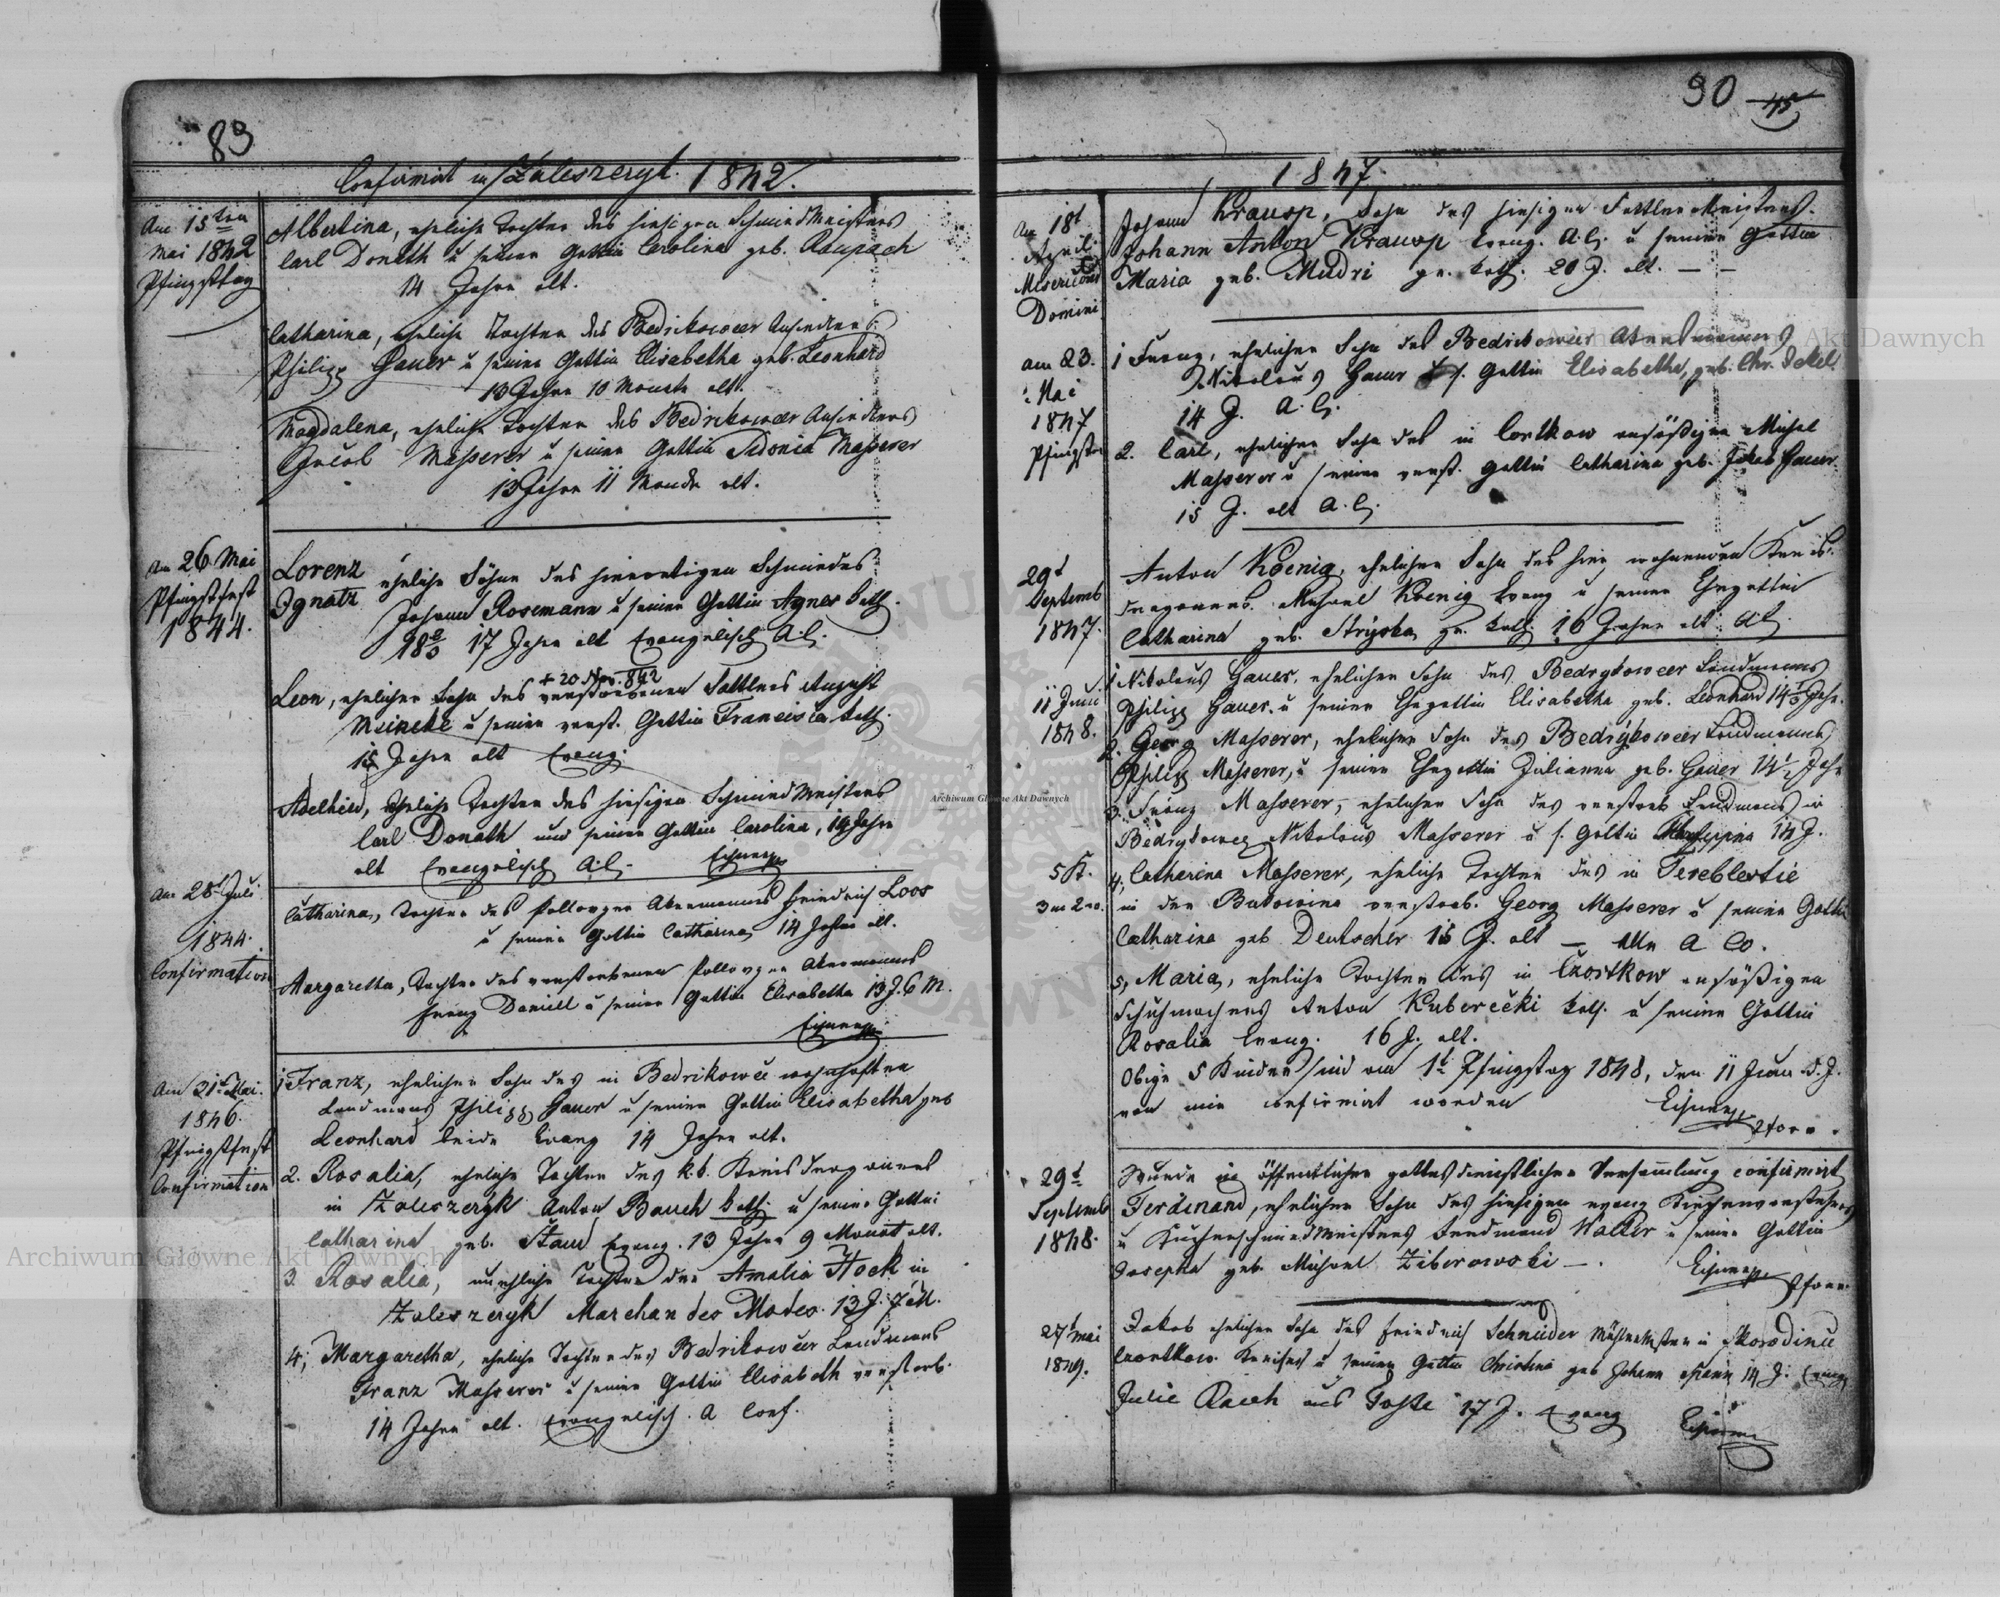 89
Confirmirt in Zaleszczyk. 1842.
Am 15ten
Mai 1842
Pfingsttag
Albertina, eheliche Tochter des hiesigen Schmiedmeisters
Carl Donath u seiner Gattin Carolina geb. Raupach
14 Jahre alt.
Catharina, eheliche Tochter des Bedrikowcer Ansiedlers
Philipp Gauer u seiner Gattin Elisabetha geb. Leonhard
13 Jahre 10 Monate alt.
Magdalena, eheliche Tochter des Bedrikowcer Ansiedlers
Jacob Masserer u seiner Gattin Sidonia Masserer
13 Jahre 11 Monate alt.
Am 26 Mai
Pfingstfest
1844.
Lorenz
Ignatz
eheliche Söhne des hierortigen Schmiedes
Johann Rosemann u seiner Gattin Agnes kath.
17 Jahre alt Evangelisch A.C.
+ 20 Nov. 842
Leon, ehelicher Sohn des verstorbenen Sattlers August
Meinekl u seiner verst. Gattin Francisca kath.
15 Jahre alt Evang.
Adelheid, eheliche Tochter des hiesigen Schmiedmeisters
Carl Donath und seiner Gattin Carolina, 14 Jahre
alt Evangelisch A.C.
Am 28t Juli
1844.
Confirmation
Catharina, Tochter des Ackermannes Friedrich Loos
u seiner Gattin Catharina 14 Jahre alt.
Margaretha, Tochter des verstorbenen Ackermannes
Franz Daniell u seiner Gattin Elisabetha 13 J. 6 M.
Am 31t Mai
1846.
Pfingstfest
Confirmation
1 Franz, ehelicher Sohn des in Bedrikowce wohnhaften
Landmans Philipp Gauer u seiner Gattin Elisabetha geb
Leonhard beide Evang 14 Jahre alt.
2. Rosalia, eheliche Tochter des k.k. Kreisdragoners
in Zaleszczyk Anton Bauch kath. u seiner Gattin
Catharina geb. Staud Evang. 13 Jahre 9 Monat alt.
3. Rosalia, uneheliche Tochter der Amalia Hock in
Zaleszczyk Marchandes Modes. 13 J. 7 M.
4, Margaretha, eheliche Tochter des Bedrikowcer Landmans
Franz Masserer u seiner Gattin Elisabeth verstorb.
14 Jahre alt. Evangelisch. A Conf.
90 45
1847.
Am 18t
April
Misericord
Domini
Johann Krausp, Sohn des hiesigen Sattler Meisters
Johann Anton Krausp Evang. A.C. u seiner Gattin
Maria geb. Mudri gr. kath. 20 J. alt.
am 23.
Mai
1847
Pfingsten
1 Franz, ehelicher Sohn des Bedrikowcer Ackermannes
Nikolaus Gauer u s. Gattin Elisabetha, geb.
14 J. A.C.
2. Carl, ehelicher Sohn des in Cortkow ansäßigen Michel
Masserer u seiner verst. Gattin Catharina geb. Gauer
15 J. alt A.C.
29t
Septemb
1847.
Anton Koenig, ehelicher Sohn des hier wohnenden Kreis-
dragoners Michael Koenig Evang u seiner Ehegattin
Catharina geb. Stryska gr. kath. 16 Jahre alt A.C.
11 Juni
1848.
1 Nikolaus Gauer, ehelicher Sohn des Bedrykowcer Landmanns
Philipp Gauer u seiner Ehegattin Elisabetha geb. Leonhard 14 Jahr.
2. Georg Masserer, ehelicher Sohn des Bedrykowcer Landmanns
Philipp Masserer, u seiner Ehegattin Julianna geb. Gauer 14 1/2 Jahr
3. Franz Masserer, ehelicher Sohn des verstorb Landmans in
Bedrykowce Nikolaus Masserer u s. Gattin 14 J.
5 K.
4, Catharina Masserer, eheliche Tochter des in Tereblestie
in der Bukowina verstorb. Georg Masserer u seiner Gattin
Catharina geb Deutscher 15 J. alt — Alle A Co.
5, Maria, eheliche Tochter des in Czortkow ansäßigen
Schuhmachers Anton Kuberečki kath. u seiner Gattin
Rosalia Evang. 16 J. alt.
Obige 5 Kinder sind am 1t Pfingsttag 1848, den 11 Juni d.J.
von mir confirmirt worden
29t
Septemb
1848.
Wurde in öffentlicher gottesdienstlicher Versamlung confirmirt
Ferdinand, ehelicher Sohn des hiesigen evang Kirchenvorstehers
u Kupferschmiedmeisters Ferdinand Walter u seiner Gattin
Josepha geb. Michael Ziborowski
Pfarrer
27t Mai
1849.
Jakob ehelicher Sohn des Friedrich Schneider in Skorodince
Czortkow Kreises u seiner Gattin Christina geb Johann 14 J. Evang
Julie Rauch aus 17 J. Evang
Archiwum Główne Akt Dawnych
Archiwum Główne Akt Dawnych
Archiwum Główne Akt Dawnych